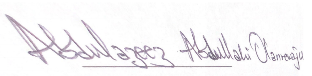 Abdulazeez Abdullahi Olanrewaju